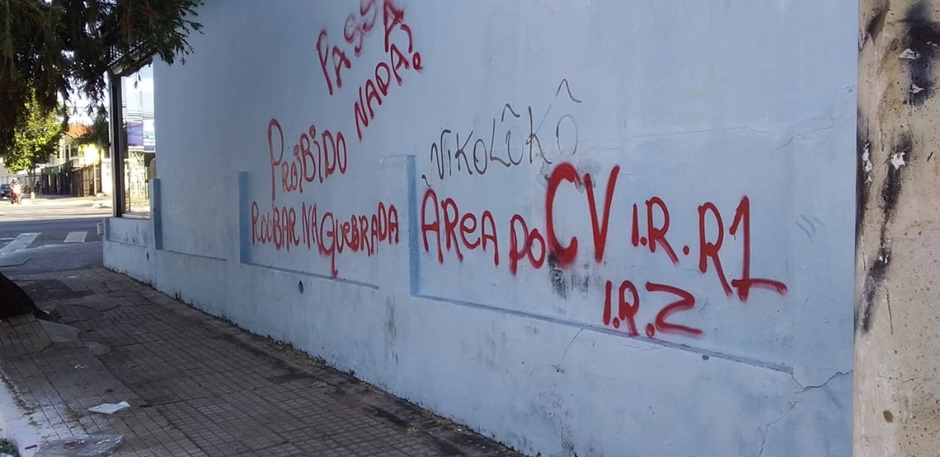 PASSA
NADA?
PROIBIDO
ROUBAR NA QUEBRADA
NIKOLÛKÔ
ÀREA DO CV I.R. R1
I.R.2